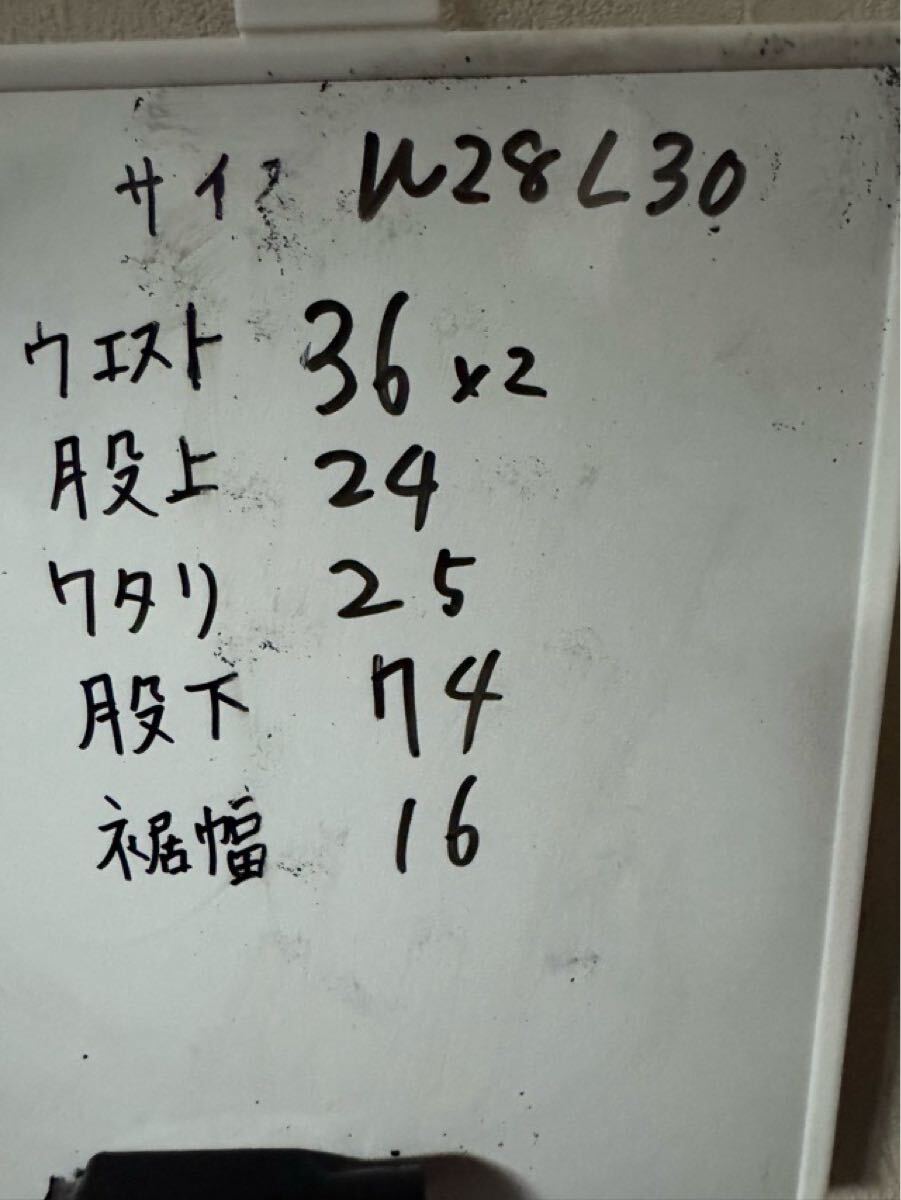 サイズ W28L30
ウエスト 36x2
股上 24
ワタリ 25
股下 74
裾幅 16